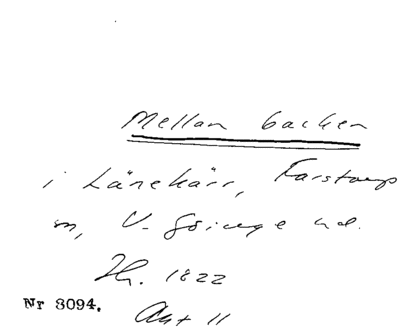 Mellan backen
i Länekärr, Farstorps
n, V. Göinge hd.
Jh. 1822
Akt 11
Nr 3094.